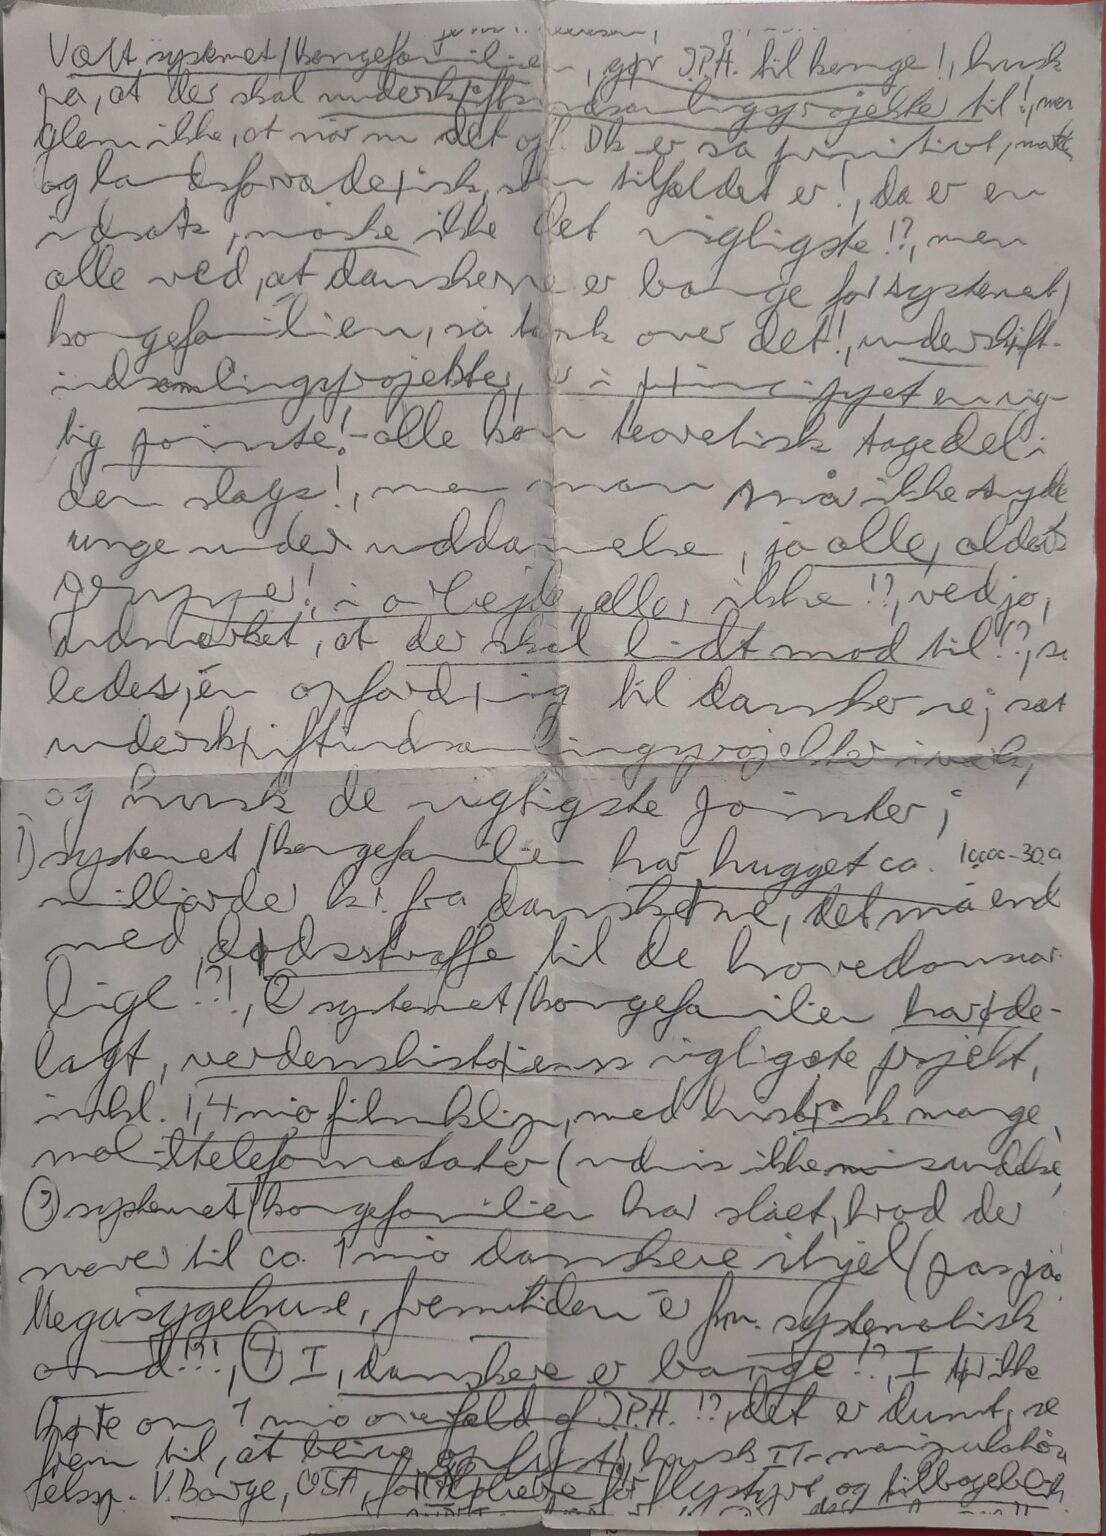 Vælt systemet/kongefamilien, gør J.P.H. til konge!, husk
på, at der skal underskriftsindsamlingsprojekter til!, men
glem ikke, at når m det Dk er så primitivt,
og landsforræderisk, som tilfældet er!, da er en
indsats, måske ikke det vigtigste!?, men
alle ved, at danskerne er bange for systemet/
kongefamilien, så tænk over det!, underskift-
indsamlingsprojekter, er i princippet en vig-
tig pointe! - alle kan teoretisk tage del i
den slags!, men man må ikke snyde
unge under uddannelse, ja alle, alders
grupper!, i arbejde, eller ikke!?, ved jo,
udmærket, at der skal lidt mod til!?, så
ledes, én opfordring til danskerne; sæt
underskriftindsamlingsprojekter i værk,
og husk de vigtigste pointer;
1) systemet/kongefamilien har hugget ca.
milliarder kr. fra danskerne, det må end
med dødsstraffe til de hovedansvar-
lige!?!, (2) systemet/kongefamilien har øde-
lagt, verdenshistoriens vigtigste projekt,
inkl. 1,4 mio filmklip, med historisk mange,
mål-telefonotater (undvis ikke misundelse,
(3) systemet/kongefamilien har slået, hvad der
svarer til ca. 1 mio danskere ihjel (pas på
Megasygehuse, fremtiden er systematisk
ond!?!, (4) I, danskere er bange!?, I tør ikke
høre om 1 mio overfald af J.P.H.!?, det er dumt, se
frem til, at blive husk IT-manipulation
V. Børge, USA, for flystyrt, og tilbagebetal